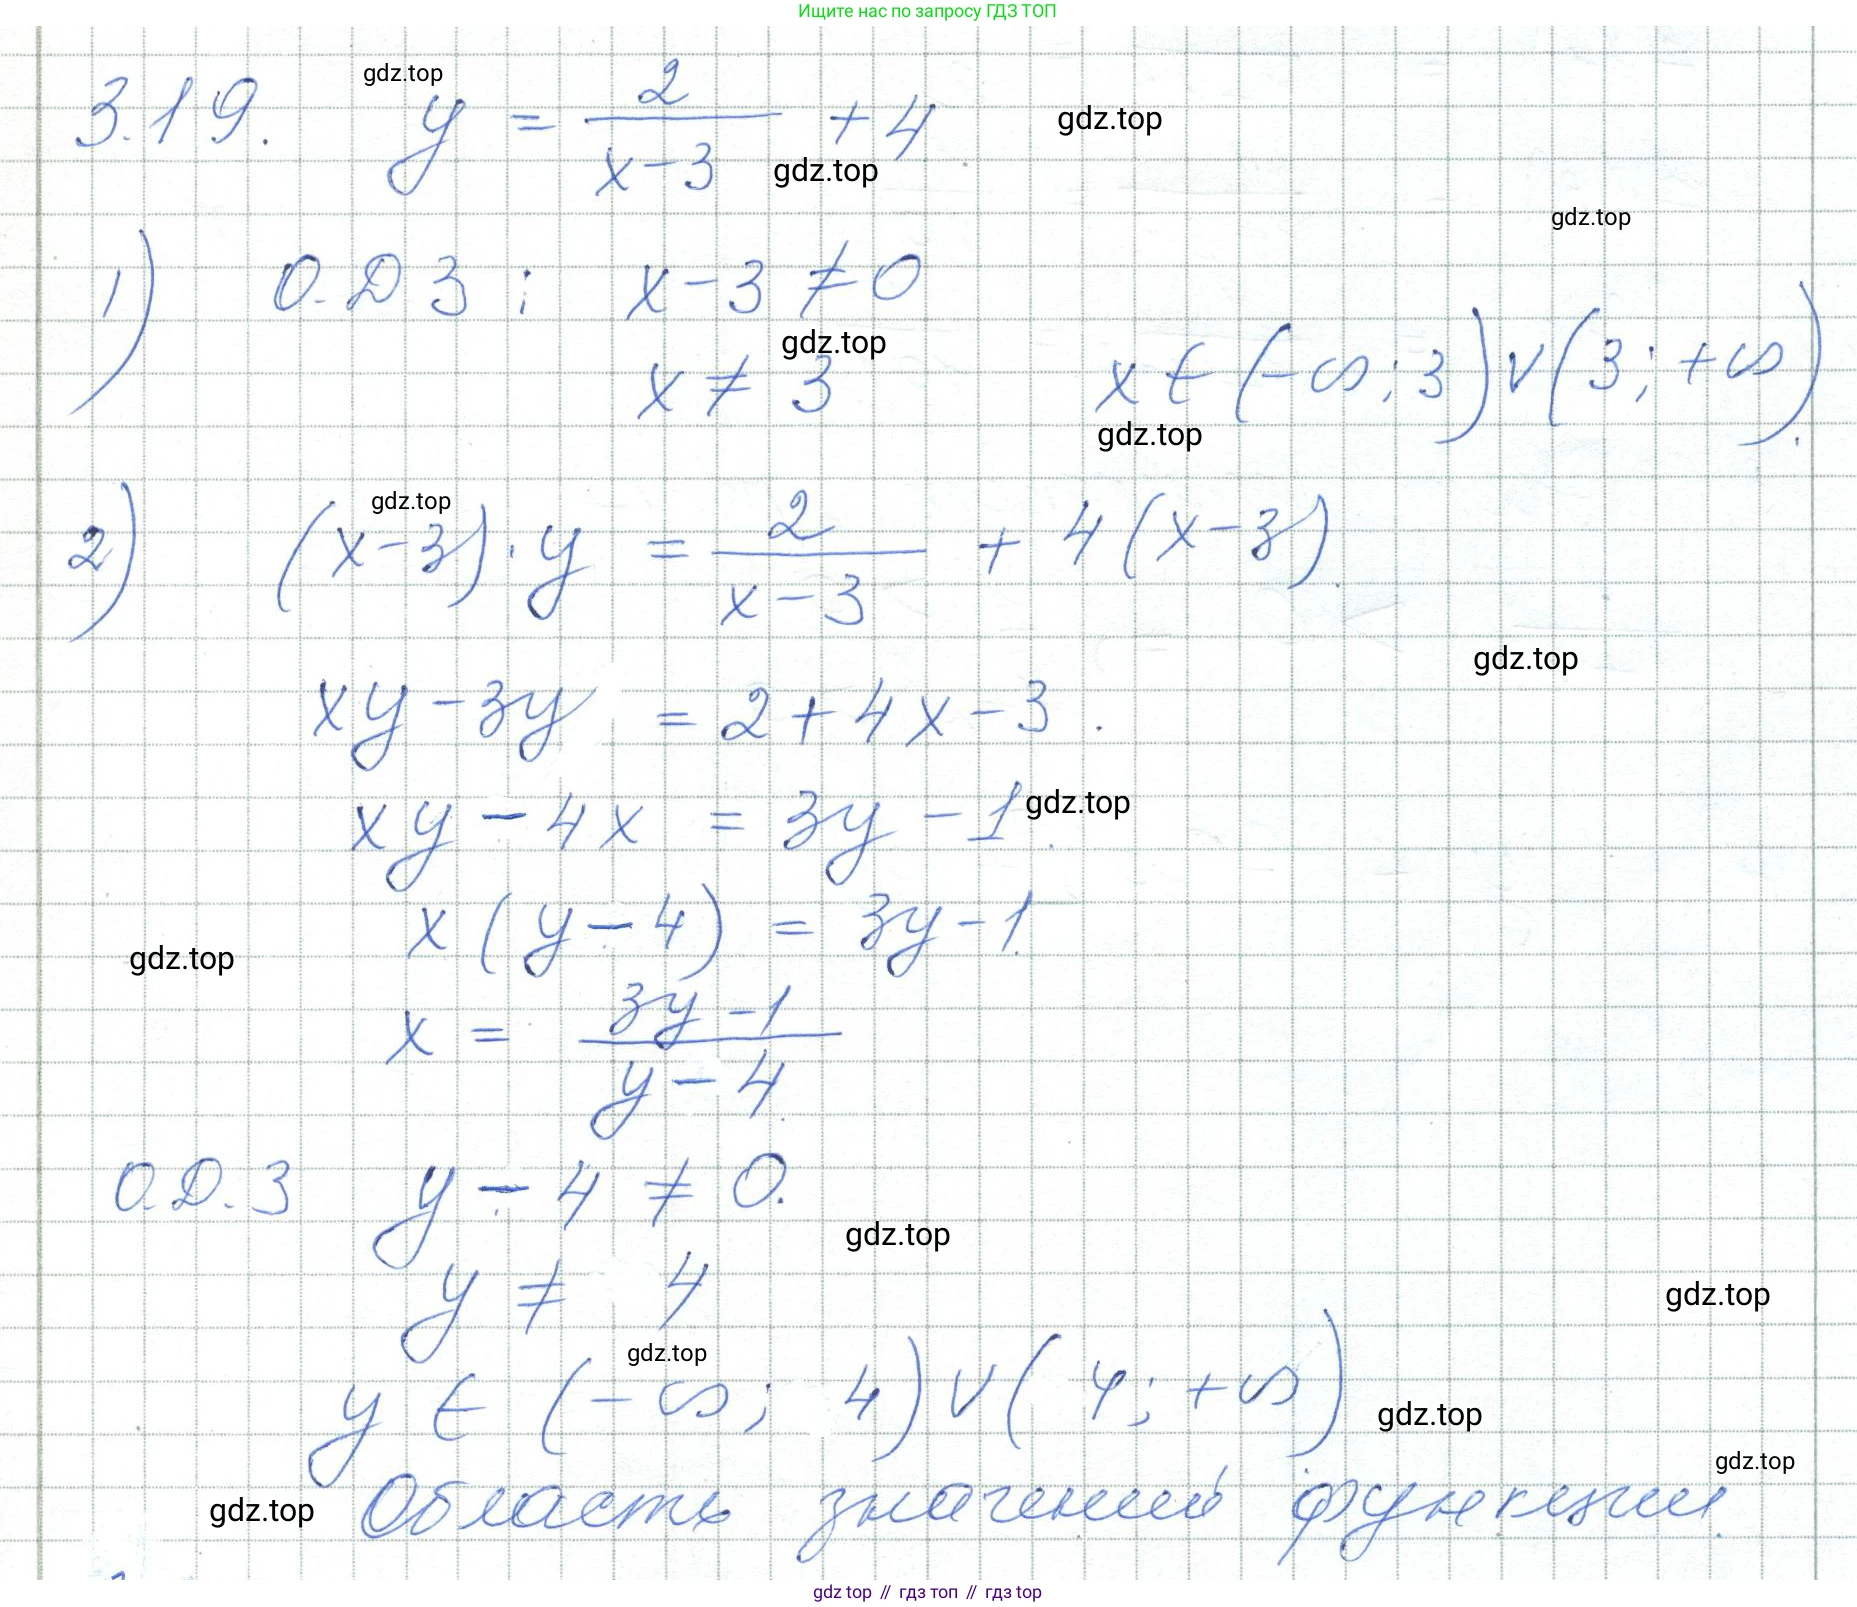 Ищите нас по запросу ГДЗ ТОП
gdz.top
3.19. y = 2/(x-3) + 4
gdz.top
gdz.top
gdz.top
1) О.Д.З: x-3 ≠ 0
gdz.top
x ≠ 3 x ∈ (-∞; 3) ∨ (3; +∞).
gdz.top
gdz.top
2) (x-3)·y = 2/(x-3) + 4(x-3).
gdz.top
xy-3y = 2+4x-3.
gdz.top
xy-4x = 3y-1.
x(y-4) = 3y-1.
gdz.top
x = (3y-1)/(y-4).
О.Д.З y-4 ≠ 0.
gdz.top
y ≠ 4
gdz.top
gdz.top
y ∈ (-∞; 4) ∨ (4; +∞)
gdz.top
gdz.top
gdz.top
Область значений функции.
gdz top // гдз топ // гдз top